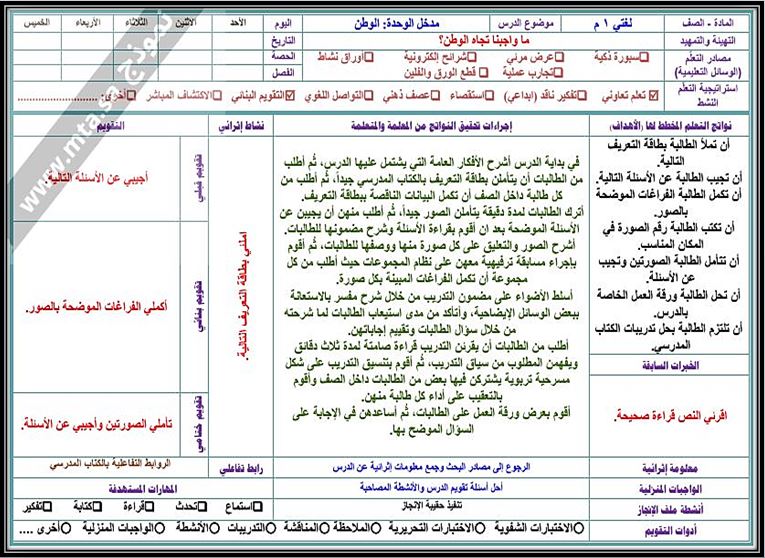 المادة - الصف
لغتي ١ م
موضوع الدرس
مدخل الوحدة: الوطن
اليوم
الأحد
الاثنين
الثلاثاء
الأربعاء
الخميس
التهيئة والتمهيد
ما واجبنا تجاه الوطن؟
التاريخ
مصادر التعلم
(الوسائل التعليمية)
سبورة ذكية
عرض مرئي
شرائح إلكترونية
أوراق نشاط
تجارب عملية
قطع الورق والفلين
الحصة
الفصل
استراتيجية التعلم
النشط
تعلم تعاوني
تفكير ناقد (ابداعي)
استقصاء
عصف ذهني
التواصل اللغوي
التقويم البنائي
الاكتشاف المباشر
أخرى: ......................
نواتج التعلم المخطط لها (الأهداف)
إجراءات تحقيق النواتج من المعلمة والمتعلمة
نشاط إثرائي
التقويم
أن تملأ الطالبة بطاقة التعريف
التالية.
أن تجيب الطالبة عن الأسئلة التالية.
أن تكمل الطالبة الفراغات الموضحة
بالصور.
أن تكتب الطالبة رقم الصورة في
المكان المناسب.
أن تتأمل الطالبة الصورتين وتجيب
عن الأسئلة.
أن تحل الطالبة ورقة العمل الخاصة
بالدرس.
أن تلتزم الطالبة بحل تدريبات الكتاب
المدرسي.
الخبرات السابقة
اقرئي النص قراءة صحيحة.
في بداية الدرس أشرح الأفكار العامة التي يشتمل عليها الدرس، ثُم أطلب
من الطالبات أن يتأملن بطاقة التعريف بالكتاب المدرسي جيداً، ثُم أطلب من
كل طالبة داخل الصف أن تكمل البيانات الناقصة ببطاقة التعريف.
أترك الطالبات لمدة دقيقة يتأملن الصور جيداً، ثُم أطلب منهن أن يجيبن عن
الأسئلة الموضحة بعد ان أقوم بقراءة الأسئلة وشرح مضمونها للطالبات.
أشرح الصور والتعليق على كل صورة منها ووصفها للطالبات، ثُم أقوم
بإجراء مسابقة ترفيهية معهن على نظام المجموعات حيث أطلب من كل
مجموعة أن تكمل الفراغات المبينة بكل صورة.
أسلط الأضواء على مضمون التدريب من خلال شرح مفسر بالاستعانة
ببعض الوسائل الإيضاحية، وأتأكد من مدى استيعاب الطالبات لما شرحته
من خلال سؤال الطالبات وتقييم إجاباتهن.
أطلب من الطالبات أن يقرئن التدريب قراءة صامتة لمدة ثلاث دقائق
ويفهمن المطلوب من سياق التدريب، ثُم أقوم بتنسيق التدريب على شكل
مسرحية تربوية يشتركن فيها بعض من الطالبات داخل الصف وأقوم
بالتعقيب على أداء كل طالبة منهن.
أقوم بعرض ورقة العمل على الطالبات، ثُم أساعدهن في الإجابة على
السؤال الموضح بها.
املئي بطاقة التعريف التالية.
تقويم قبلي
أجيبي عن الأسئلة التالية.
تقويم بنائي
أكملي الفراغات الموضحة بالصور.
تقويم ختامي
تأملي الصورتين وأجيبي عن الأسئلة.
معلومة إثرائية
الرجوع إلى مصادر البحث وجمع معلومات إثرائية عن الدرس
رابط تفاعلي
الروابط التفاعلية بالكتاب المدرسي
الواجبات المنزلية
أحل أسئلة تقويم الدرس والأنشطة المصاحبة
المهارات المستهدفة
أنشطة ملف الإنجاز
تنفيذ حقيبة الإنجاز
استماع
تحدث
قراءة
كتابة
تفكير
أدوات التقويم
الاختبارات الشفوية
الاختبارات التحريرية
الملاحظة
المناقشة
التدريبات
الأنشطة
الواجبات المنزلية
أخرى ....
نموذج
www.mta.sa